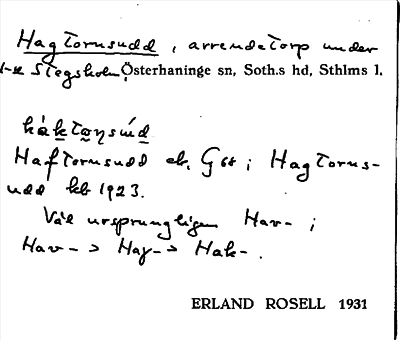 Hagtornsudd, arrendetorp under
Stegsholm, Österhaninge sn, Soth.s hd, Sthlms l.
Haftornsudd ek. G i Hagtorns-
udd kb 1923.
Väl ursprungligen Hav- ;
Hav- > Hag- > Hak- .
ERLAND ROSELL 1931